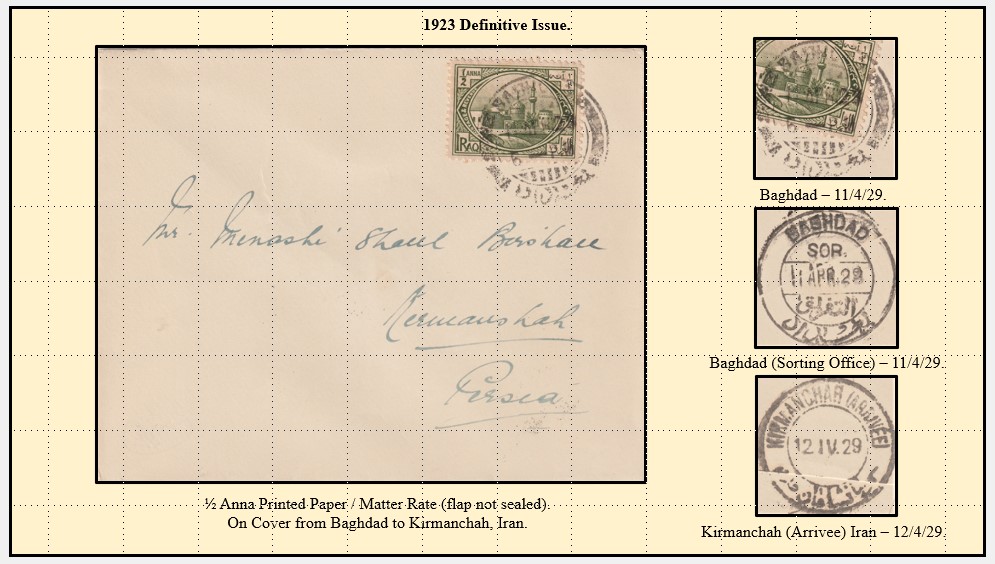 1923 Definitive Issue.
½ ANNA
IRAQ
Mr. Menashi Shaul Bershall
Kermanshah
Persia
½ Anna Printed Paper / Matter Rate (flap not sealed).
On Cover from Baghdad to Kirmanchah, Iran.
Baghdad – 11/4/29.
BAGHDAD
SOR.
11 APR. 29
التفريق
بغداد
Baghdad (Sorting Office) – 11/4/29.
KIRMANCHAH (ARRIVÉE)
12.IV.29
Kirmanchah (Arrivee) Iran – 12/4/29.